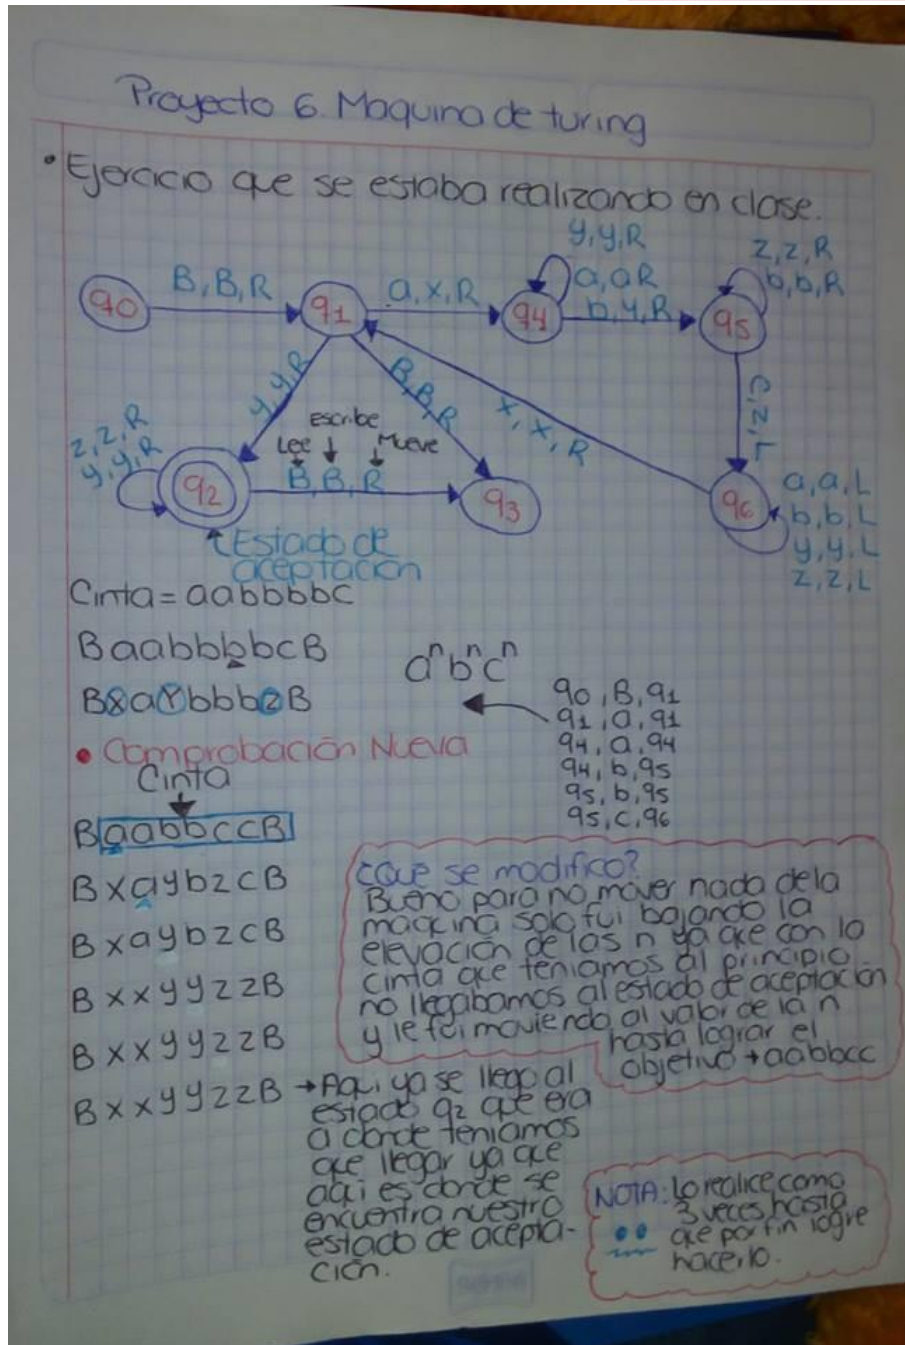 Proyecto 6. Maquina de turing
• Ejercicio que se estaba realizando en clase.
y,y,R
z,z,R
B,B,R
a,x,R
a,aR
b,b,R
q0
q1
q4
b,y,R
q5
y,y,R
B,B,R
x,x,R
c,z,L
z,z,R
y,y,R
Lee
escribe
Mueve
q2
B,B,R
q3
q6
a,a,L
b,b,L
y,y,L
z,z,L
Estado de
aceptación
Cinta = aabbbbc
BaabbbbcB
aⁿbⁿcⁿ
BXaYbbbzB
q0,B,q1
q1,a,q1
q4,a,q4
q4,b,q5
q5,b,q5
q5,c,q6
• Comprobación Nueva
Cinta
BaabbccB
BxaybzcB
BxaybzcB
BxxyyzzB
BxxyyzzB
BxxyyzzB → Aqui ya se llego al
estado q2 que era
a donde teniamos
que llegar ya que
aqui es donde se
encuentra nuestro
estado de acepta-
ción.
¿Que se modifico?
Bueno para no mover nada de la
maquina solo fui bajando la
elevación de las n ya que con la
cinta que teniamos al principio
no llegabamos al estado de aceptación
y le fui moviendo al valor de la n
hasta lograr el
objetivo → aabbcc
NOTA: Lo realice como
3 veces hasta
que por fin logre
hacerlo.